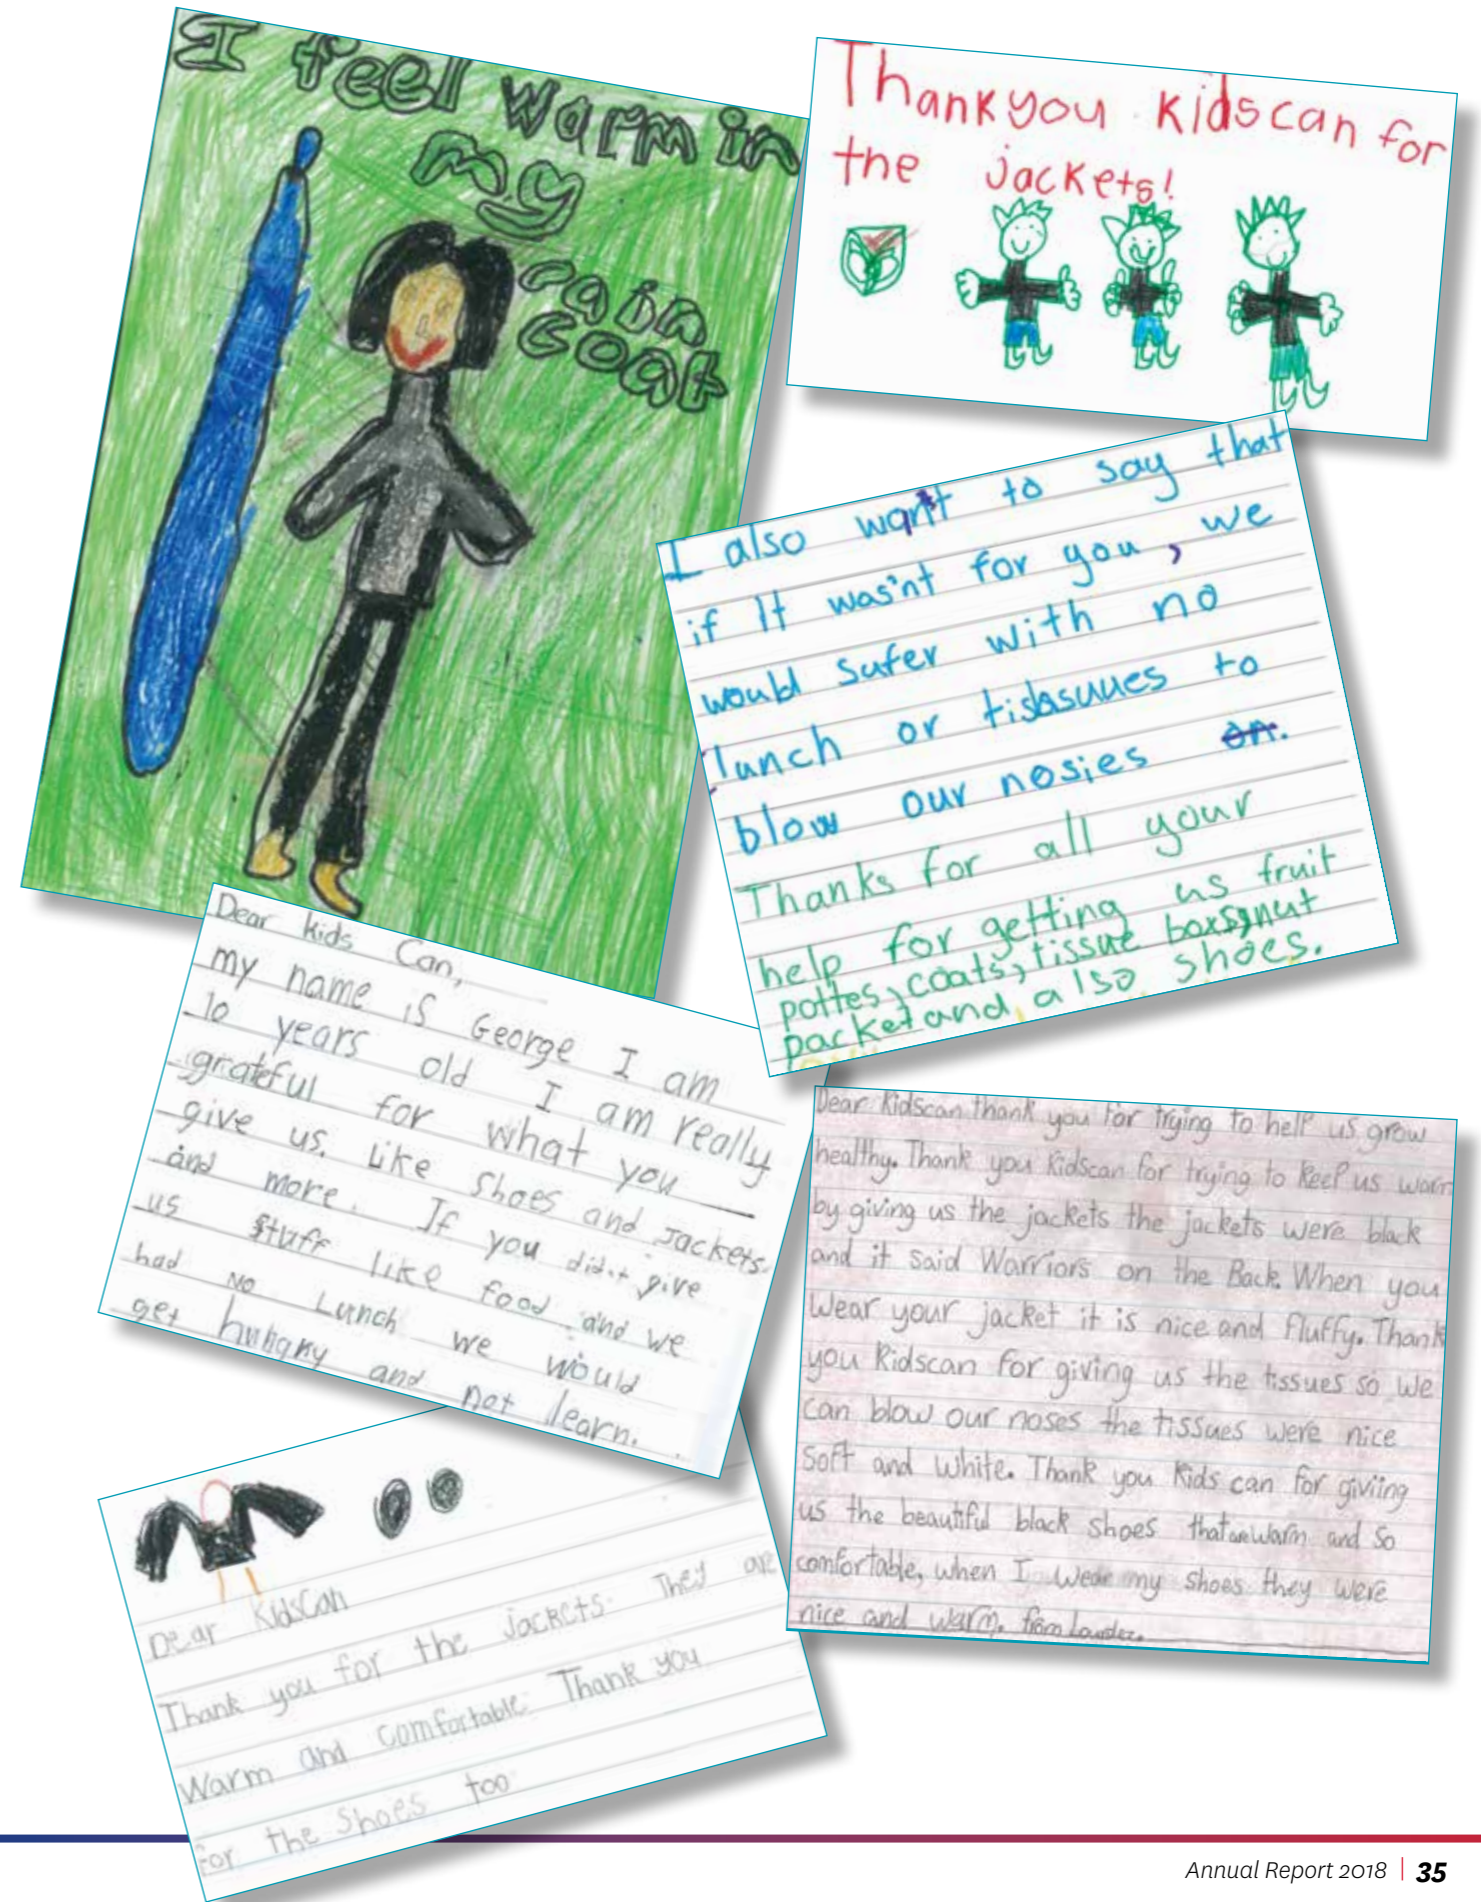 I feel warm in
my
rain
coat
Thankyou kidscan for
the jackets!
I also want to say that
if It was'nt for you, we
would sufer with no
lunch or to
blow our nosies
Thanks for all your
help for getting us fruit
pottes, coats, tissue boxs, nut
packet and, also shoes.
Dear kids Can,
my name is George I am
10 years old I am really
grateful for what you
give us. Like shoes and jackets
and more. If you didnt give
us stuff like food and we
had no Lunch we would
get hungry and not learn.
Dear Kidscan thank you for trying to help us grow
healthy. Thank you Kidscan for trying to keep us warm
by giving us the jackets the jackets were black
and it said Warriors on the Back. When you
wear your jacket it is nice and fluffy. Thank
you Kidscan for giving us the tissues so we
can blow our noses the tissues were nice
soft and white. Thank you Kids can for giviing
us the beautiful black shoes that are warm and so
comfortable, when I wear my shoes they were
nice and warm. from
Dear KidsCan
Thank you for the jackets. They are
Warm and comfortable. Thank you
for the shoes too
Annual Report 2018 | 35